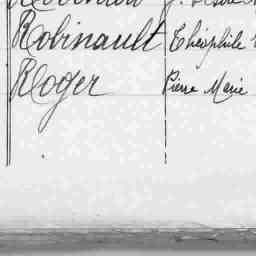 Robinault Théophile
Roger Pierre Marie